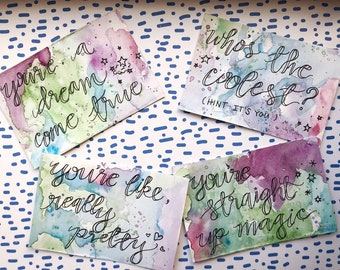 you're a
dream
come true
who's the
coolest?
(HINT: IT'S YOU)
you're like,
really
pretty
you're
straight
up magic